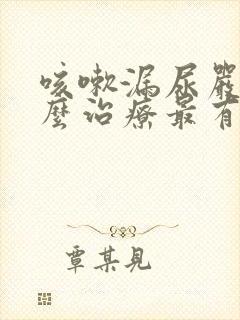 咳嗽漏尿嚴
麼治療最有
覃某見